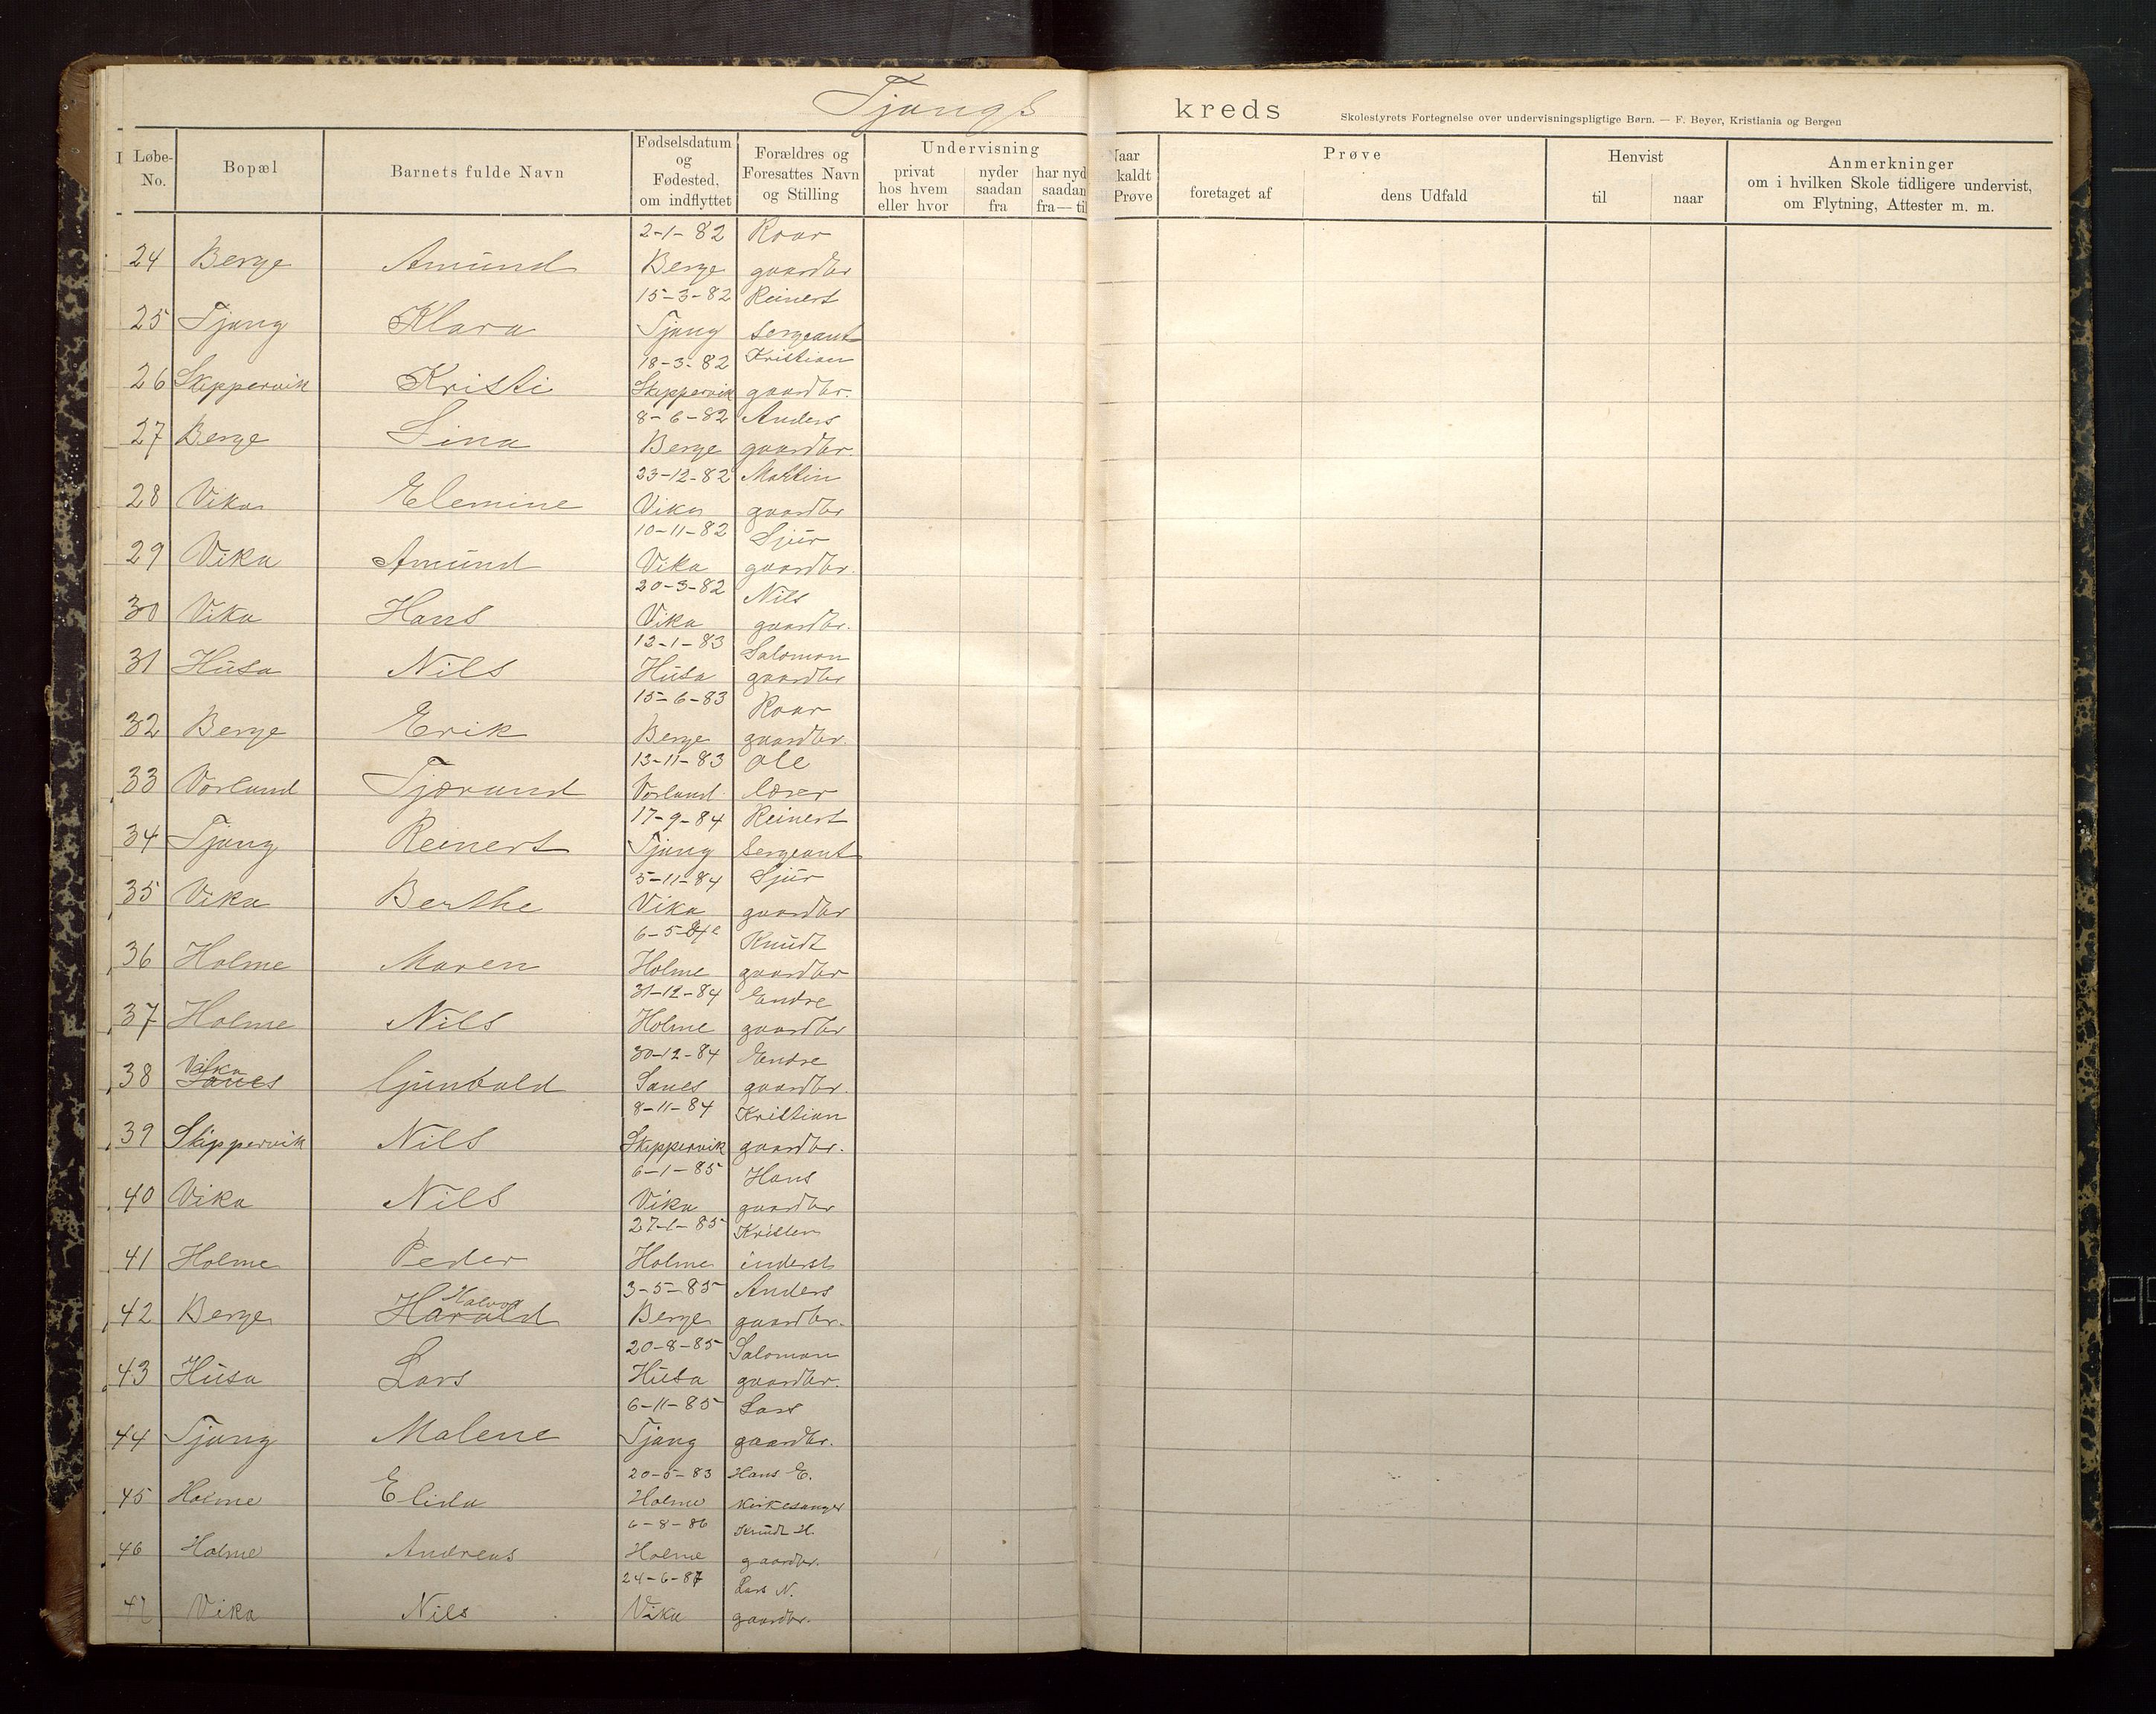 Tjongs kreds Skolestyrets Fortegnelse over undervisningspligtige Børn. — F. Beyer, Kristiania og Bergen
Løbe-No. Bopæl Barnets fulde Navn Fødselsdatum og Fødested, om indflyttet Forældres og Foresattes Navn og Stilling Undervisning privat hos hvem eller hvor nyder saadan fra har nyd saadan fra—til
Naar kaldt Prøve Prøve foretaget af dens Udfald Henvist til naar Anmerkninger om i hvilken Skole tidligere undervist, om Flytning, Attester m. m.
2-1-82 Roar
24 Berge Amund Berge gaardbr
15-3-82 Reinert
25 Tjong Klara Tjong Sergeant
18-3-82 Kristian
26 Skippervik Kristi Skippervik gaardbr.
8-6-82 Anders
27 Berge Lina Berge gaardbr.
23-12-82 Martin
28 Vika Elemine Vika gaardbr
10-11-82 Sjur
29 Vika Amund Vika gaardbr.
20-3-82 Nils
30 Vika Hans Vika gaardbr.
12-1-83 Salomon
31 Husa Nils Husa gaardbr
15-6-83 Roar
32 Berge Erik Berge gaardbr.
13-11-83 Ole
33 Vorland Tjørand Vorland lærer
17-9-84 Reinert
34 Tjong Reinert Tjong Sergeant
5-11-84 Sjur
35 Vika Berthe Vika gaardbr
6-5-84 Knudt
36 Holme Maren Holme gaardbr
31-12-84 Endre
37 Holme Nils Holme gaardbr
30-12-84 Endre
Vika
38 Sanes Gunbold Sanes gaardbr.
8-11-84 Kristian
39 Skippervik Nils Skippervik gaardbr.
6-1-85 Hans
40 Vika Nils Vika gaardbr
27-1-85 Kristen
41 Holme Peder Holme inderst
3-5-85 Anders
Halvor
42 Berge Harald Berge gaardbr.
20-8-85 Salomon
43 Husa Lars Husa gaardbr.
6-11-85 Lars
44 Tjong Malene Tjong gaardbr.
20-5-83 Hans E.
45 Holme Elida Holme Kirkesanger
6-8-86 Knudt H.
46 Holme Andreas Holme gaardbr.
24-6-87 Lars N.
47 Vika Nils Vika gaardbr.